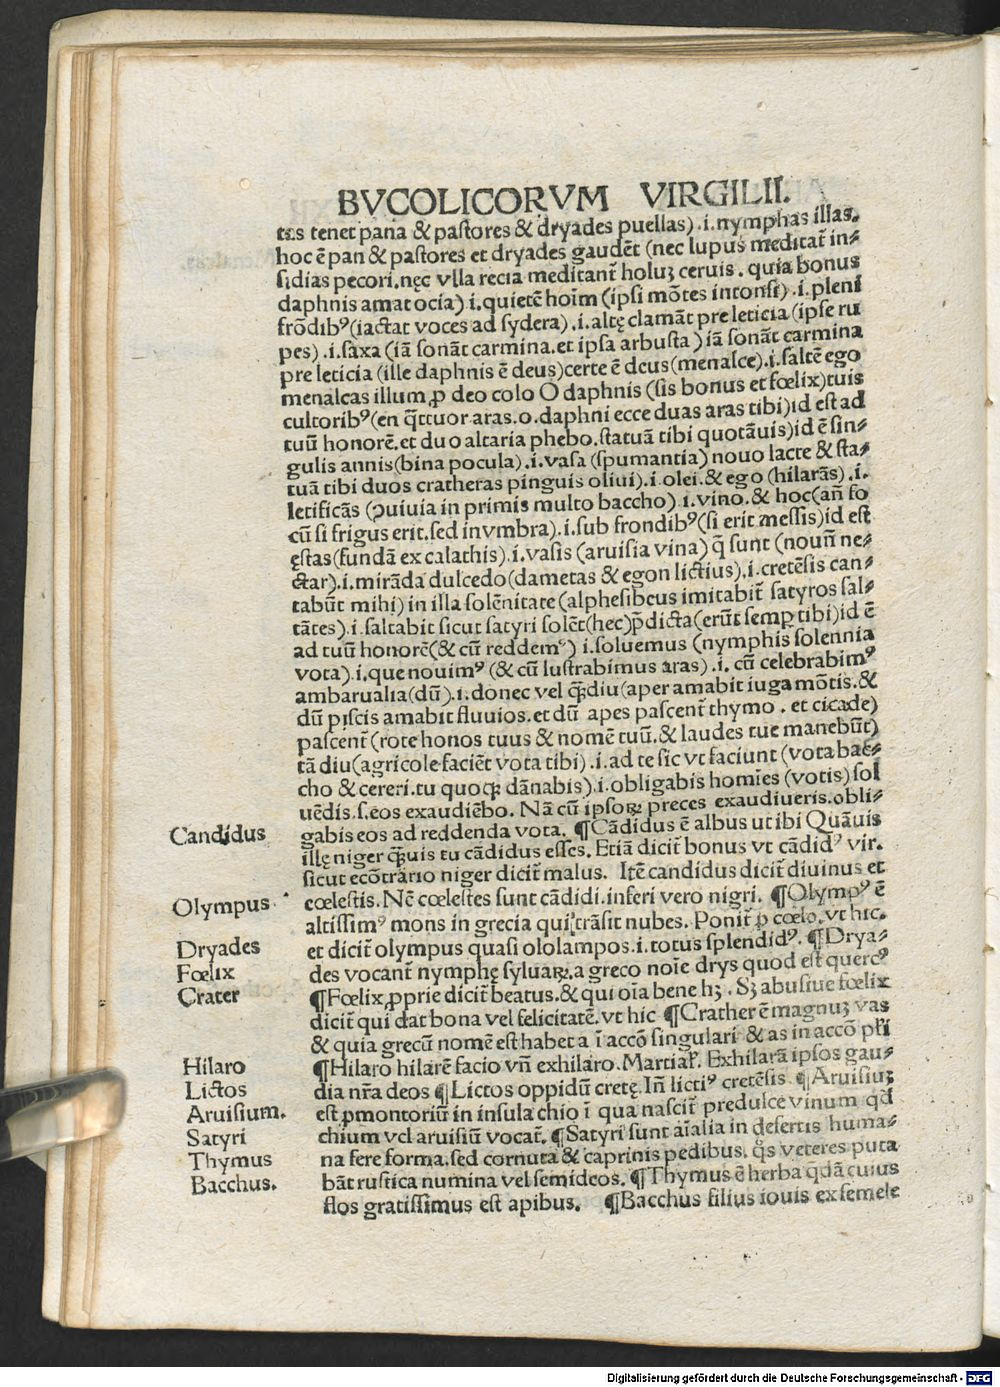 BVCOLICORVM VIRGILII.
tas tenet pana & pastores & dryades puellas).i.nymphas illas.
hoc ē pan & pastores et dryades gaudēt (nec lupus meditat̄ in-
sidias pecori.nęc vlla recia meditant̄ holuꝫ ceruis. quia bonus
daphnis amat ocia) i.quietē hoīm (ipsi mōtes intonsi).i.pleni
frōdibꝰ(iactat voces ad sydera).i.altę clamāt pre leticia (ipse ru
pes).i.saxa (iā sonāt carmina.et ipsa arbusta) iā sonāt carmina
pre leticia (ille daphnis ē deus) certe ē deus (menalce).i.saltē ego
menalcas illum ꝓ deo colo O daphnis (sis bonus et fœlix) tuis
cultoribꝰ(en q̄ttuor aras.o.daphni ecce duas aras tibi) id est ad
tuū honorē.et duo altaria phebo.statuā tibi quotāuis) id ē sin-
gulis annis (bina pocula).i.vasa (spumantia) nouo lacte & sta-
tuā tibi duos cratheras pinguis oliui).i.olei.& ego (hilarās).i.
letificās (ꝯuiuia in primis multo baccho).i.vino.& hoc (an̄ fo
cū si frigus erit.sed in vmbra).i.sub frondibꝰ(si erit messis) id est
ęstas (fundā ex calathis).i.vasis (aruisia vina) q̄ sunt (nouū ne-
ctar).i.mirāda dulcedo (dametas & egon lictius).i.cretēsis can-
tabūt mihi) in illa solēnitate (alphesibeus imitabit̄ satyros sal-
tātes).i.saltabit sicut satyri solēt (hec) p̄dicta (erūt semꝑ tibi) id ē
ad tuū honorē (& cū reddemꝰ) i.soluemus (nymphis solennia
vota).i.que nouimꝰ (& cū lustrabimus aras).i. cū celebrabimꝰ
ambarualia (dū).i.donec vel q̄diu (aper amabit iuga mōtis.&
dū piscis amabit fluuios.et dū apes pascent̄ thymo. et cicade)
pascent̄ (rote honos tuus & nomē tuū.& laudes tue manebūt)
tā diu (agricole faciēt vota tibi).i.ad te sic vt faciunt (vota bac-
cho & cereri.tu quoqꝫ dānabis).i.obligabis homīes (votis) sol
uēdis.s.eos exaudiēbo. Nā cū ipsoꝝ preces exaudiueris.obli-
gabis eos ad reddenda vota. ¶Cādidus ē albus ut ibi Quāuis
illę niger q̄uis tu cādidus esses. Etiā dicit̄ bonus vt cādidꝰ vir.
sicut ecōtrario niger dicit̄ malus. Itē candidus dicit̄ diuinus et
cœlestis. Nē cœlestes sunt cādidi.inferi vero nigri. ¶Olympꝰ ē
altissimꝰ mons in grecia qui trāsit nubes. Ponit̄ ꝓ cœlo.vt hic.
et dicit̄ olympus quasi ololampos.i.totus splendidꝰ. ¶Drya-
des vocant̄ nymphę syluaꝝ.a greco noīe drys quod est quercꝰ
¶Fœlix ꝓprie dicit̄ beatus.& qui oīa bene hꝫ. Sꝫ abusiue fœlix
dicit̄ qui dat bona vel felicitatē.vt hic ¶Crather ē magnuꝫ vas
& quia grecū nomē est habet a ī accō singulari & as in accō pl̄i
¶Hilaro hilarē facio vn̄ exhilaro. Martial̄. Exhilarā ipsos gau-
dia nr̄a deos ¶Lictos oppidū cretę. In̄ lictiꝰ cretēsis. ¶Aruisiuꝫ
est ꝓmontoriū in insula chio ī qua nascit̄ predulce vinum qd̄
chium vel aruisiū vocat̄. ¶Satyri sunt aīalia in desertis huma-
na fere forma.sed cornuta & caprinis pedibus. q̄s veteres puta
bāt rustica numina vel semideos. ¶Thymus ē herba q̄dā cuius
flos gratissimus est apibus. ¶Bacchus filius iouis ex semele
Candidus
Olympus
Dryades
Fœlix
Crater
Hilaro
Lictos
Aruisium.
Satyri
Thymus
Bacchus.
Digitalisierung gefördert durch die Deutsche Forschungsgemeinschaft - DFG